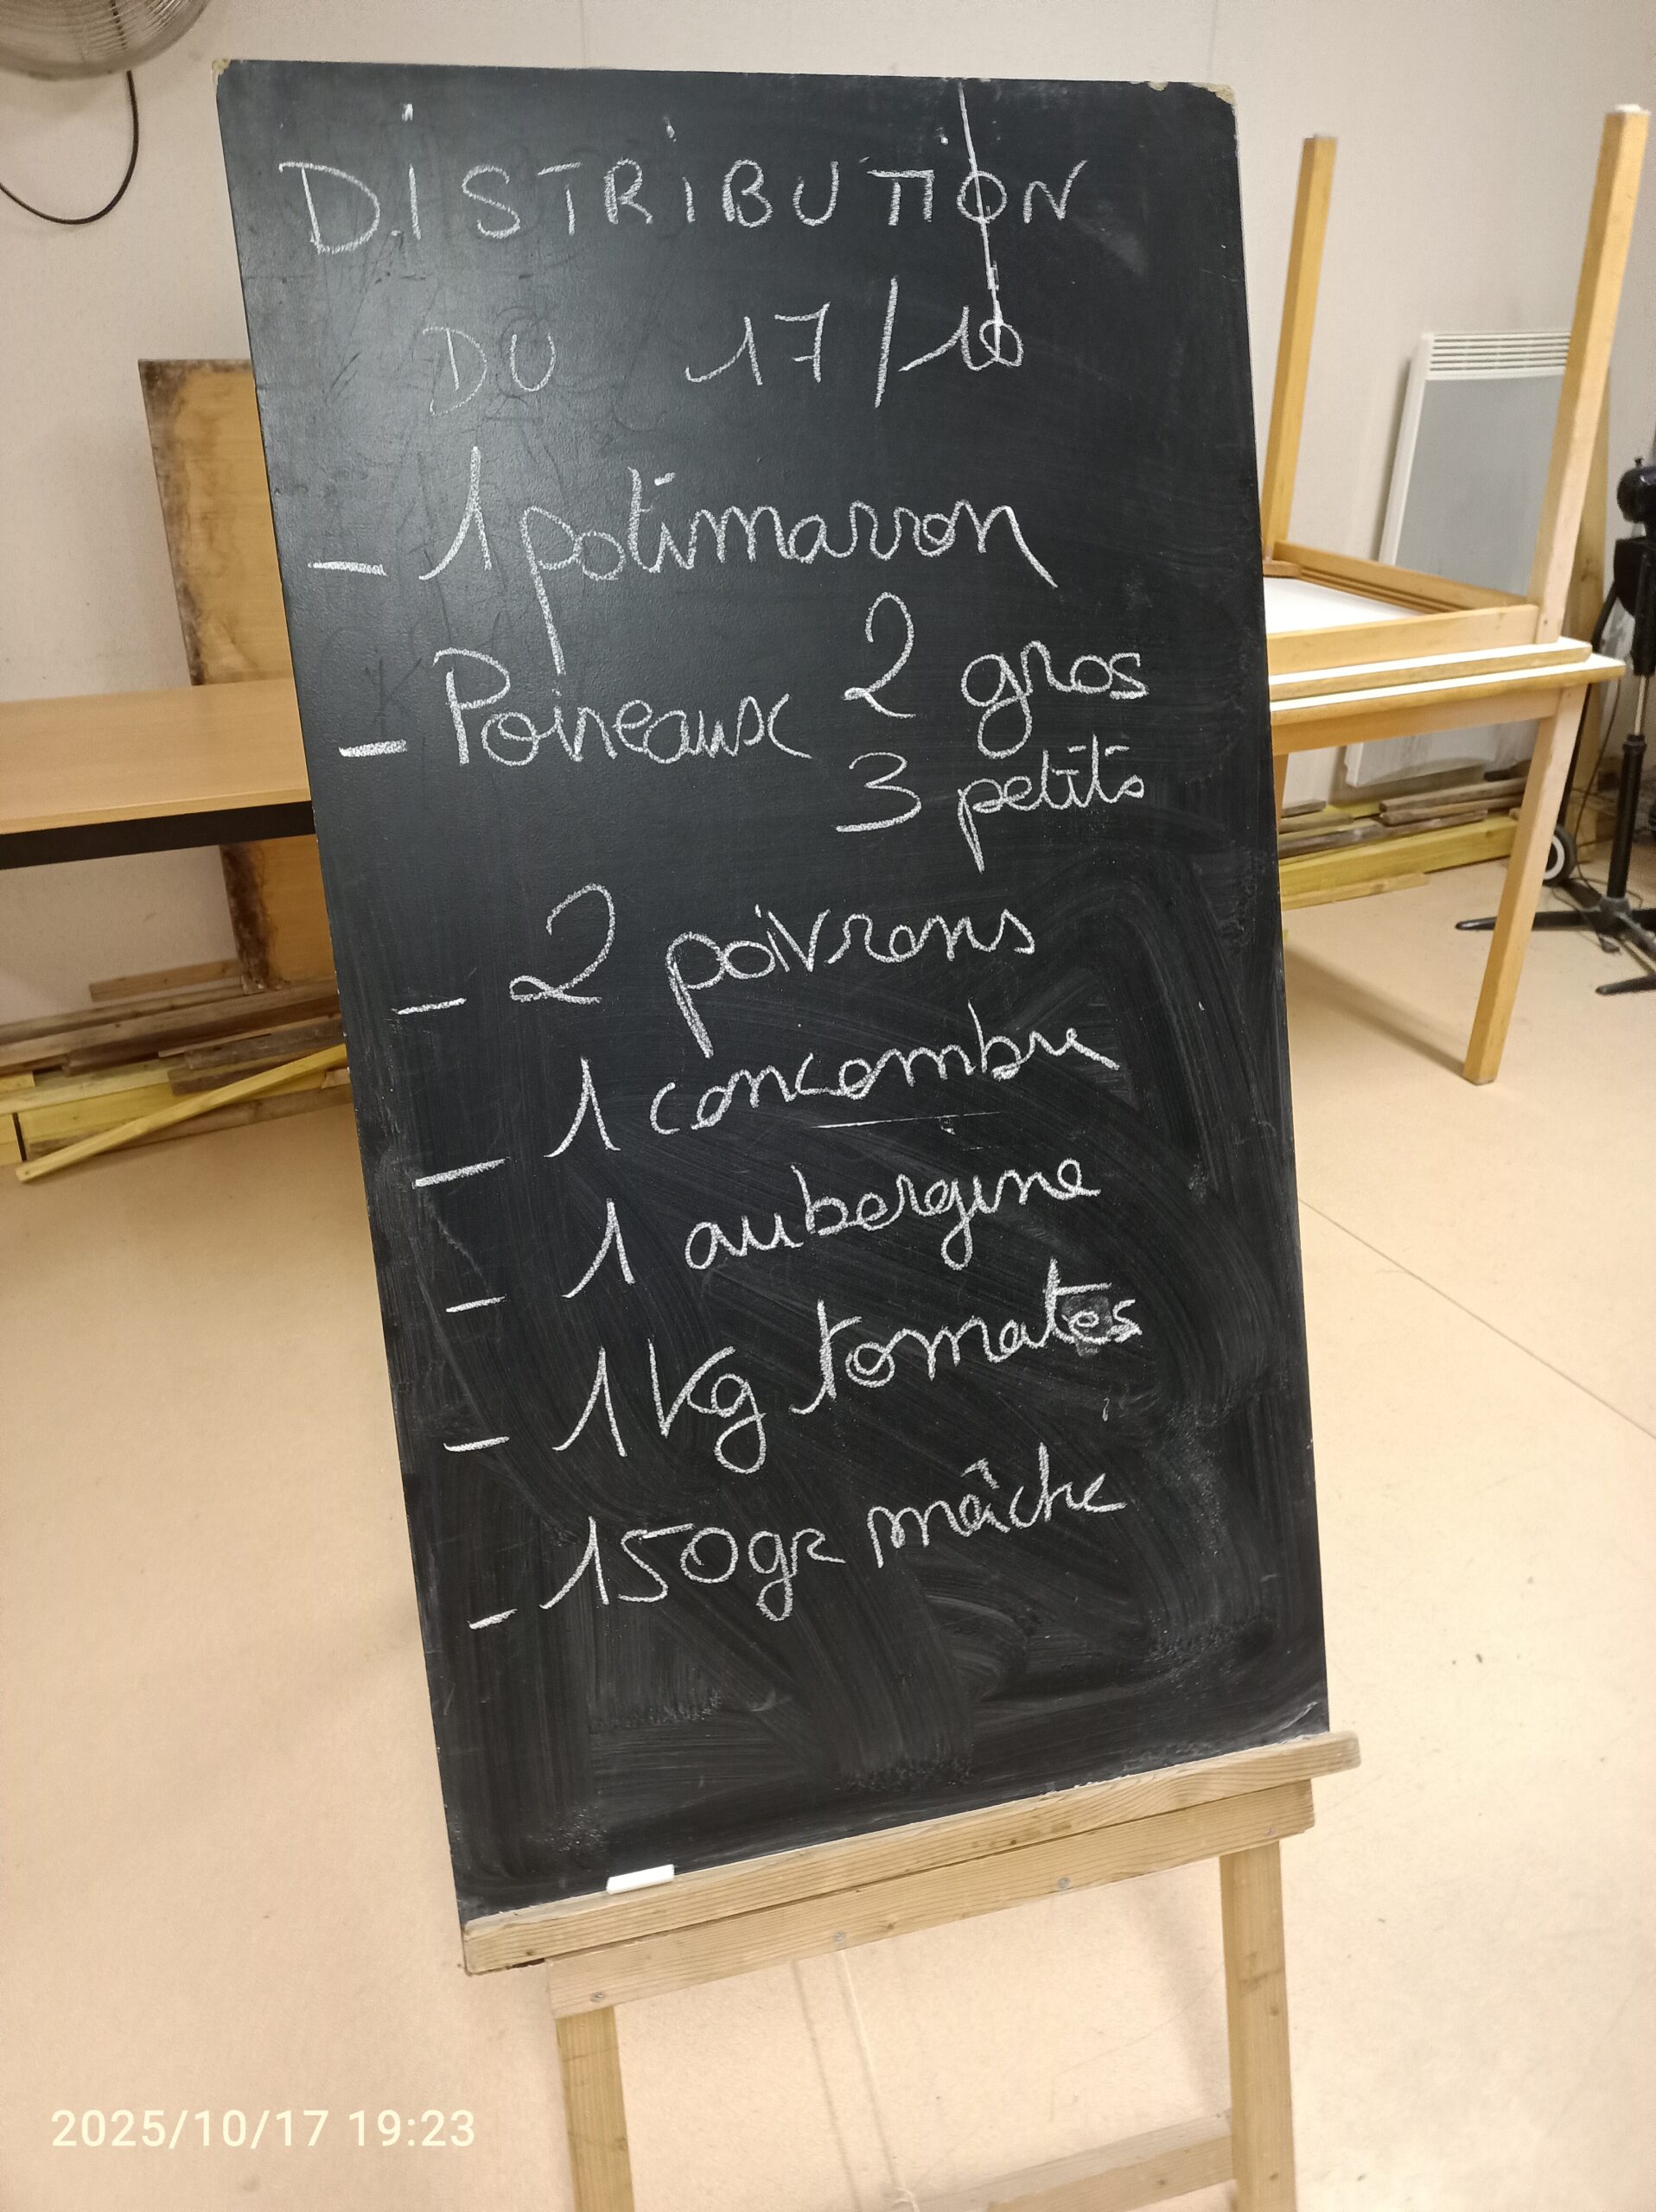 DiSTRiBUTiON
DU 17/10
- 1 potimarron
- Poireaux 2 gros
3 petits
- 2 poivrons
- 1 concombre
- 1 aubergine
- 1 Kg tomates
- 150gr mâche
2025/10/17 19:23